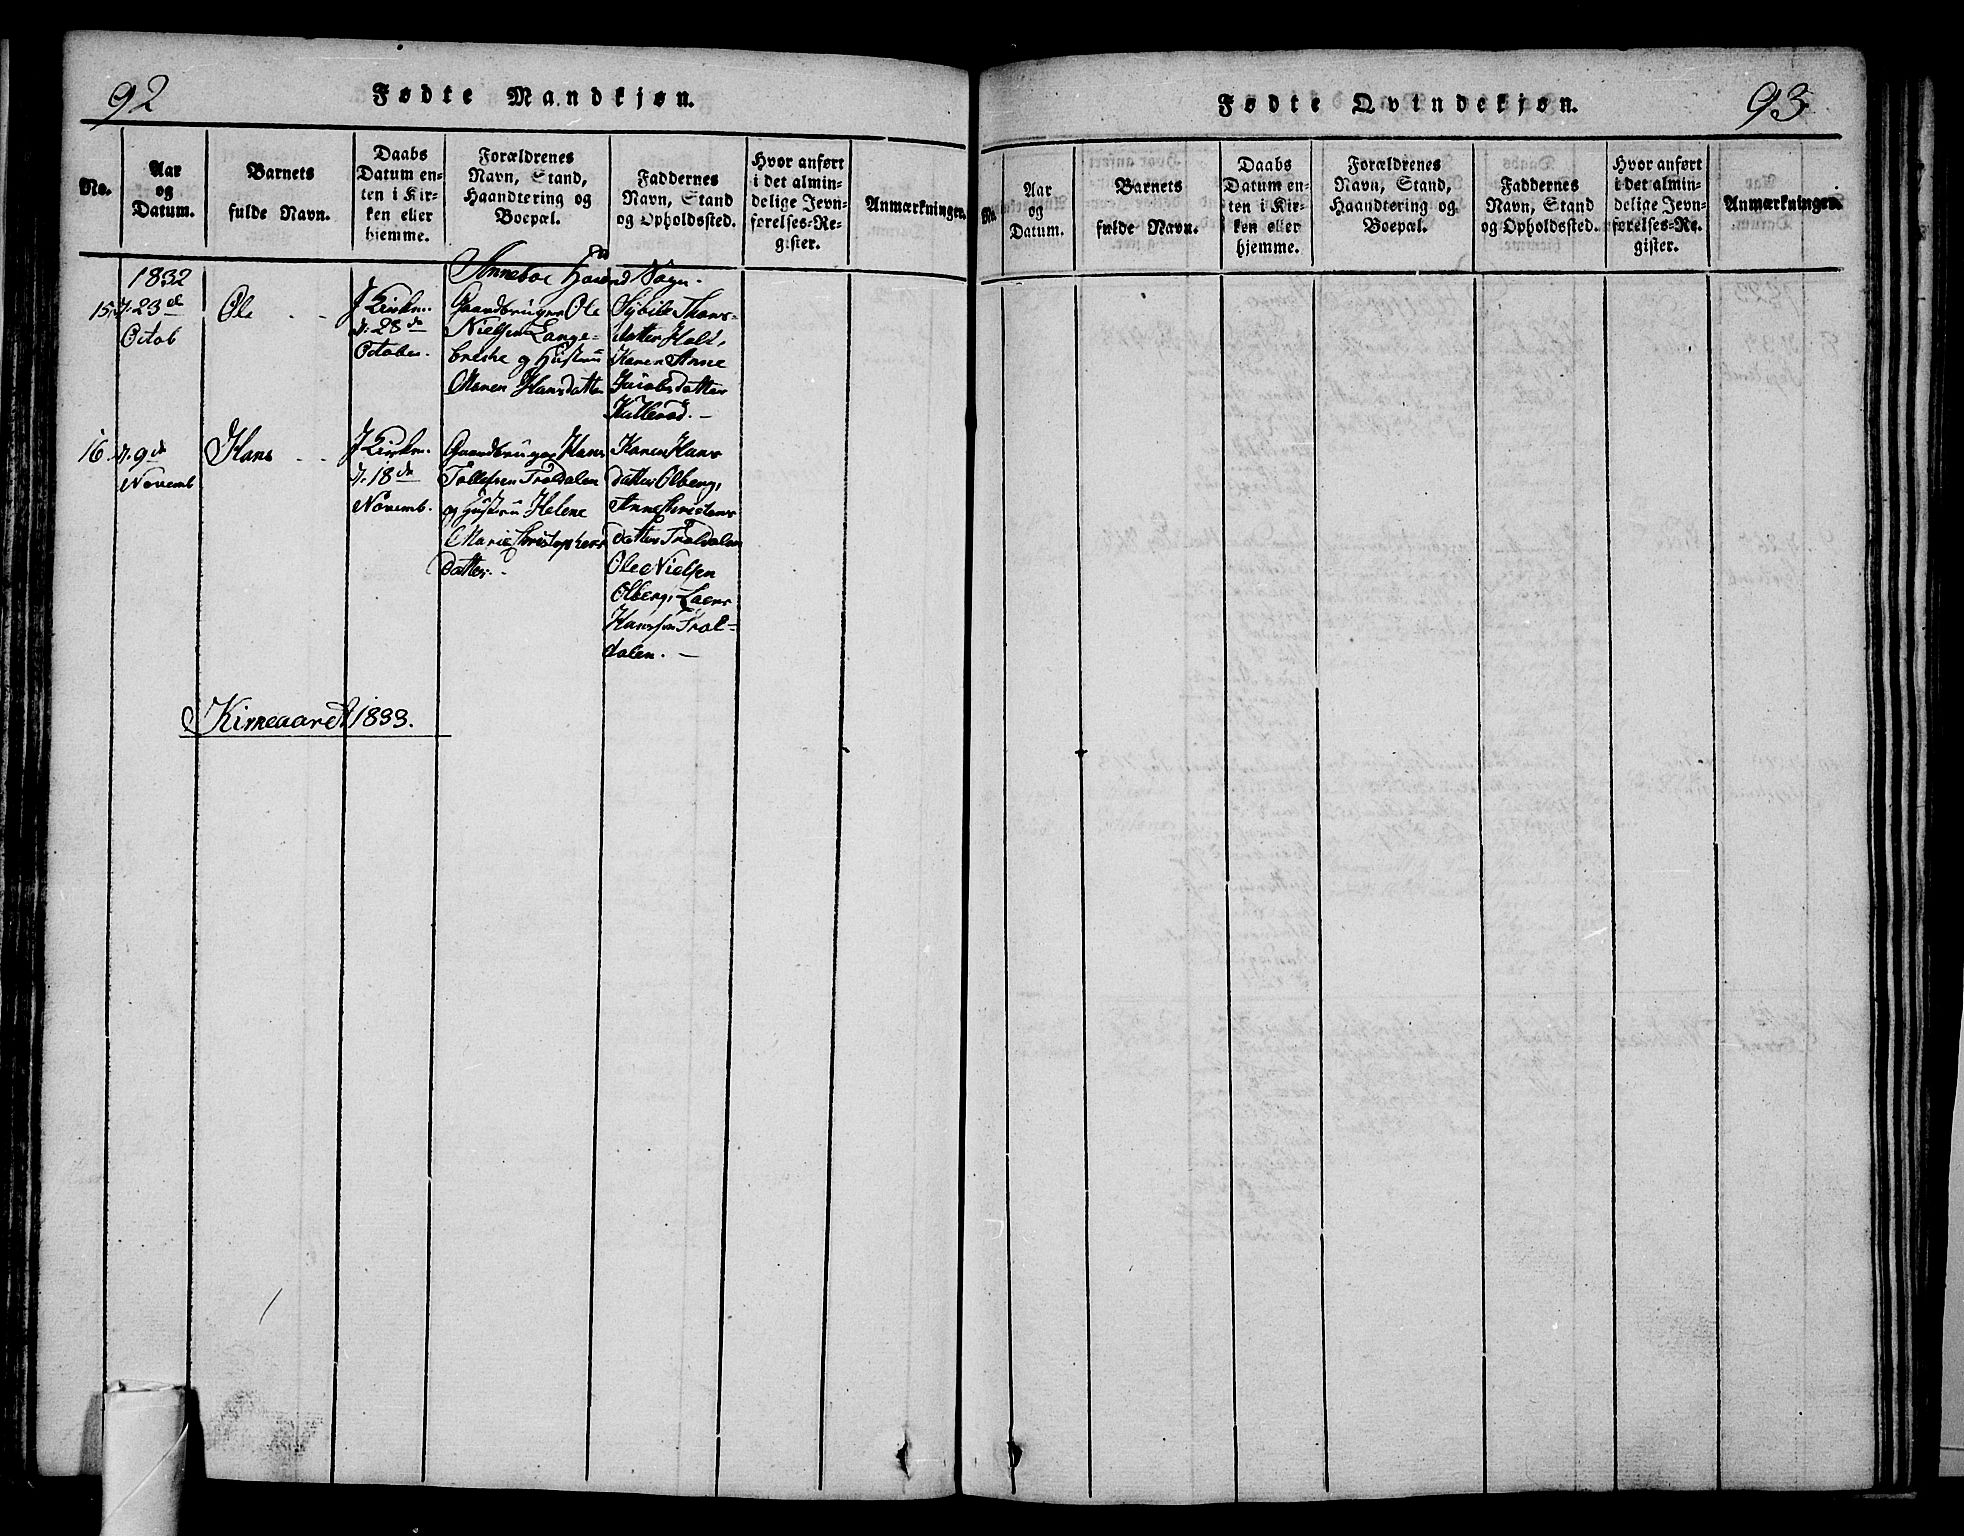 92
Fødte Mandkjøn.
No.
Aar
og
Datum.
Barnets
fulde Navn.
Daabs
Datum en-
ten i Kir-
ken eller
hjemme.
Forældrenes
Navn, Stand,
Haandtering og
Boepæl.
Faddernes
Navn, Stand
og Opholdssted.
Hvor anført
i det almin-
delige Jevn-
førelses-Re-
gister.
Anmærkninger.
Anneboe Sogn.
1832
15. d. 23de
Octob
Ole
I Kirken.
d. 28de
October.
Gaardbruger Ole
Nielsen Lange-
brekke og Hustru
Maren Hansdatter
Sybile Thors-
datter Holt,
Karen Anne
Jacobsdatter
Kullerød. —
16. d. 9de
Novemb
Hans
I Kirken.
d. 18de
Novemb.
Gaardbruger Hans
Tollefsen Troldalen
og Hustru Helene
Marie Christophers
datter.
Karen Hans
datter Olberg,
Anne Christens-
datter Troldalen
Ole Nielsen
Olberg, Laers
Hansen Trol-
dalen. —
Kirkeaaret 1833.
Fødte Qvindekjøn.
93
No.
Aar
og
Datum.
Barnets
fulde Navn.
Daabs
Datum en-
ten i Kir-
ken eller
hjemme.
Forældrenes
Navn, Stand,
Haandtering og
Boepæl.
Faddernes
Navn, Stand
og Opholdssted.
Hvor anført
i det almin-
delige Jevn-
førelses-Re-
gister.
Anmærkninger.